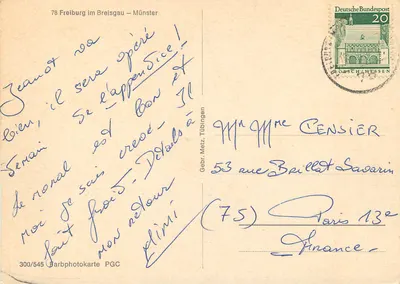 78 Freiburg im Breisgau – Münster
Jeanot va
bien, il sera opéré
demain de l'appendice!
Le moral est bon et
moi je suis crevée. Il
fait froid. Détails à
mon retour
Mimi
300/545 Farbphotokarte PGC
Gebr. Metz, Tübingen
Deutsche Bundespost
20
LORSCH/HESSEN
Mr Mme CENSIER
53 rue Brillat Savarin
(75) Paris 13e
France